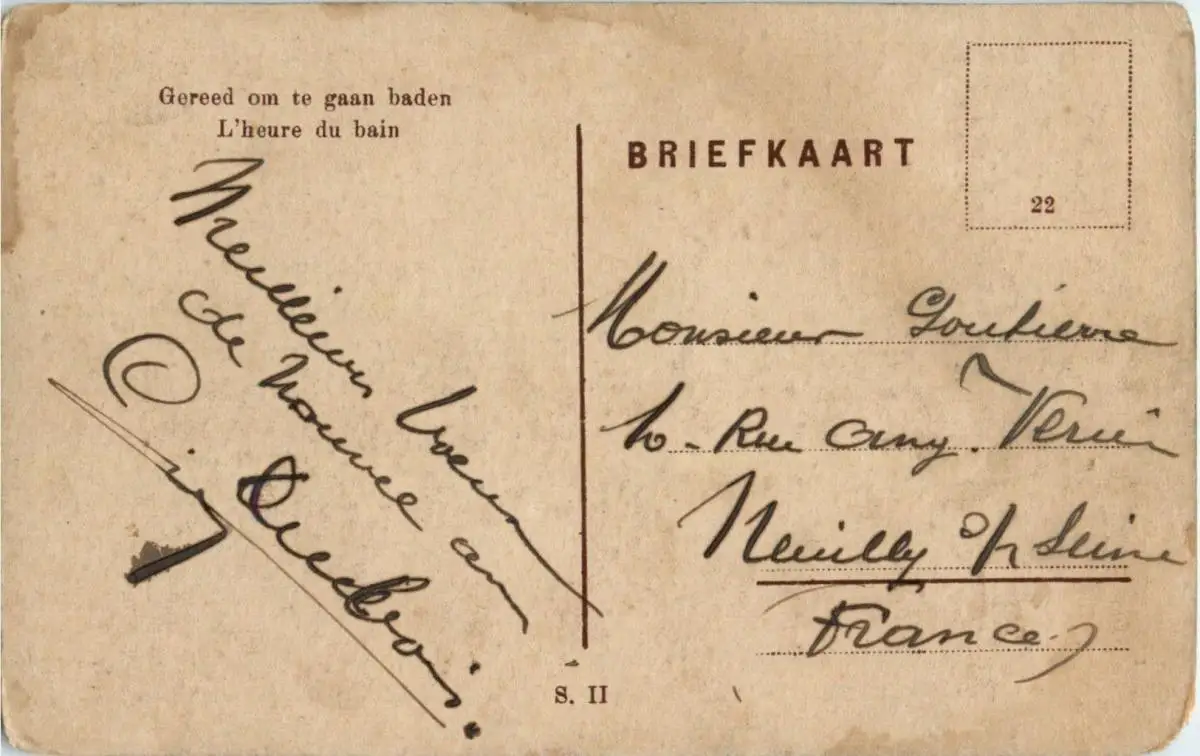 Gereed om te gaan baden
L'heure du bain
Meilleurs voeux
de Nouvel an
BRIEFKAART
22
Monsieur Goutierre
Rue Amy.
Neuilly s/ Seine
France
S. II